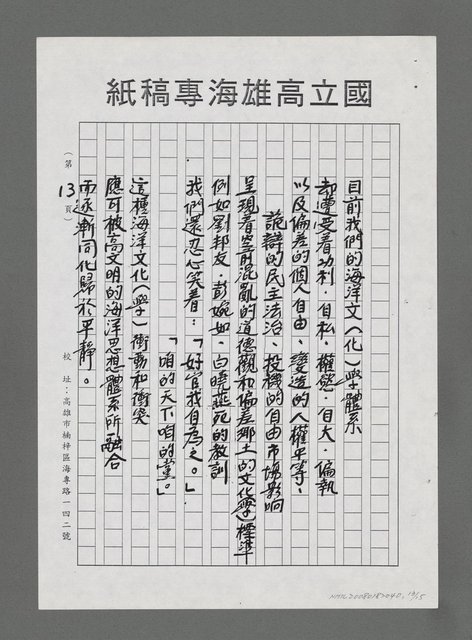 國立高雄海專稿紙
目前我們的海洋文(化)學體系
却遭受着功利．自私．權慾．自大．偏執
以及偏差的個人自由、變造的人權平等、
詭辯的民主法治、投機的自由市場影响
呈現着空前混亂的道德觀和偏差鄉土的文化(學)標準
例如劉邦友、彭婉如、白曉燕死的教訓
我們還忍心笑着：「好官我自為之。」
「咱的天下咱的黨。」
這種海洋文化(學)衝動和衝突
應可被高文明的海洋思想體系所融合
而逐漸同化歸於平靜。
(第13頁)
校址：高雄市楠梓區海專路一四二號
NMTL20080182040, 13/15